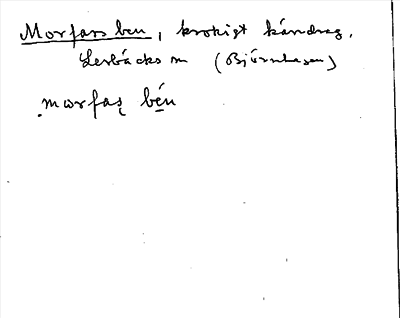 Morfars ben, krokigt kändrag.
Lerbäcks sn (Björnhagen)
morfaʂ bén